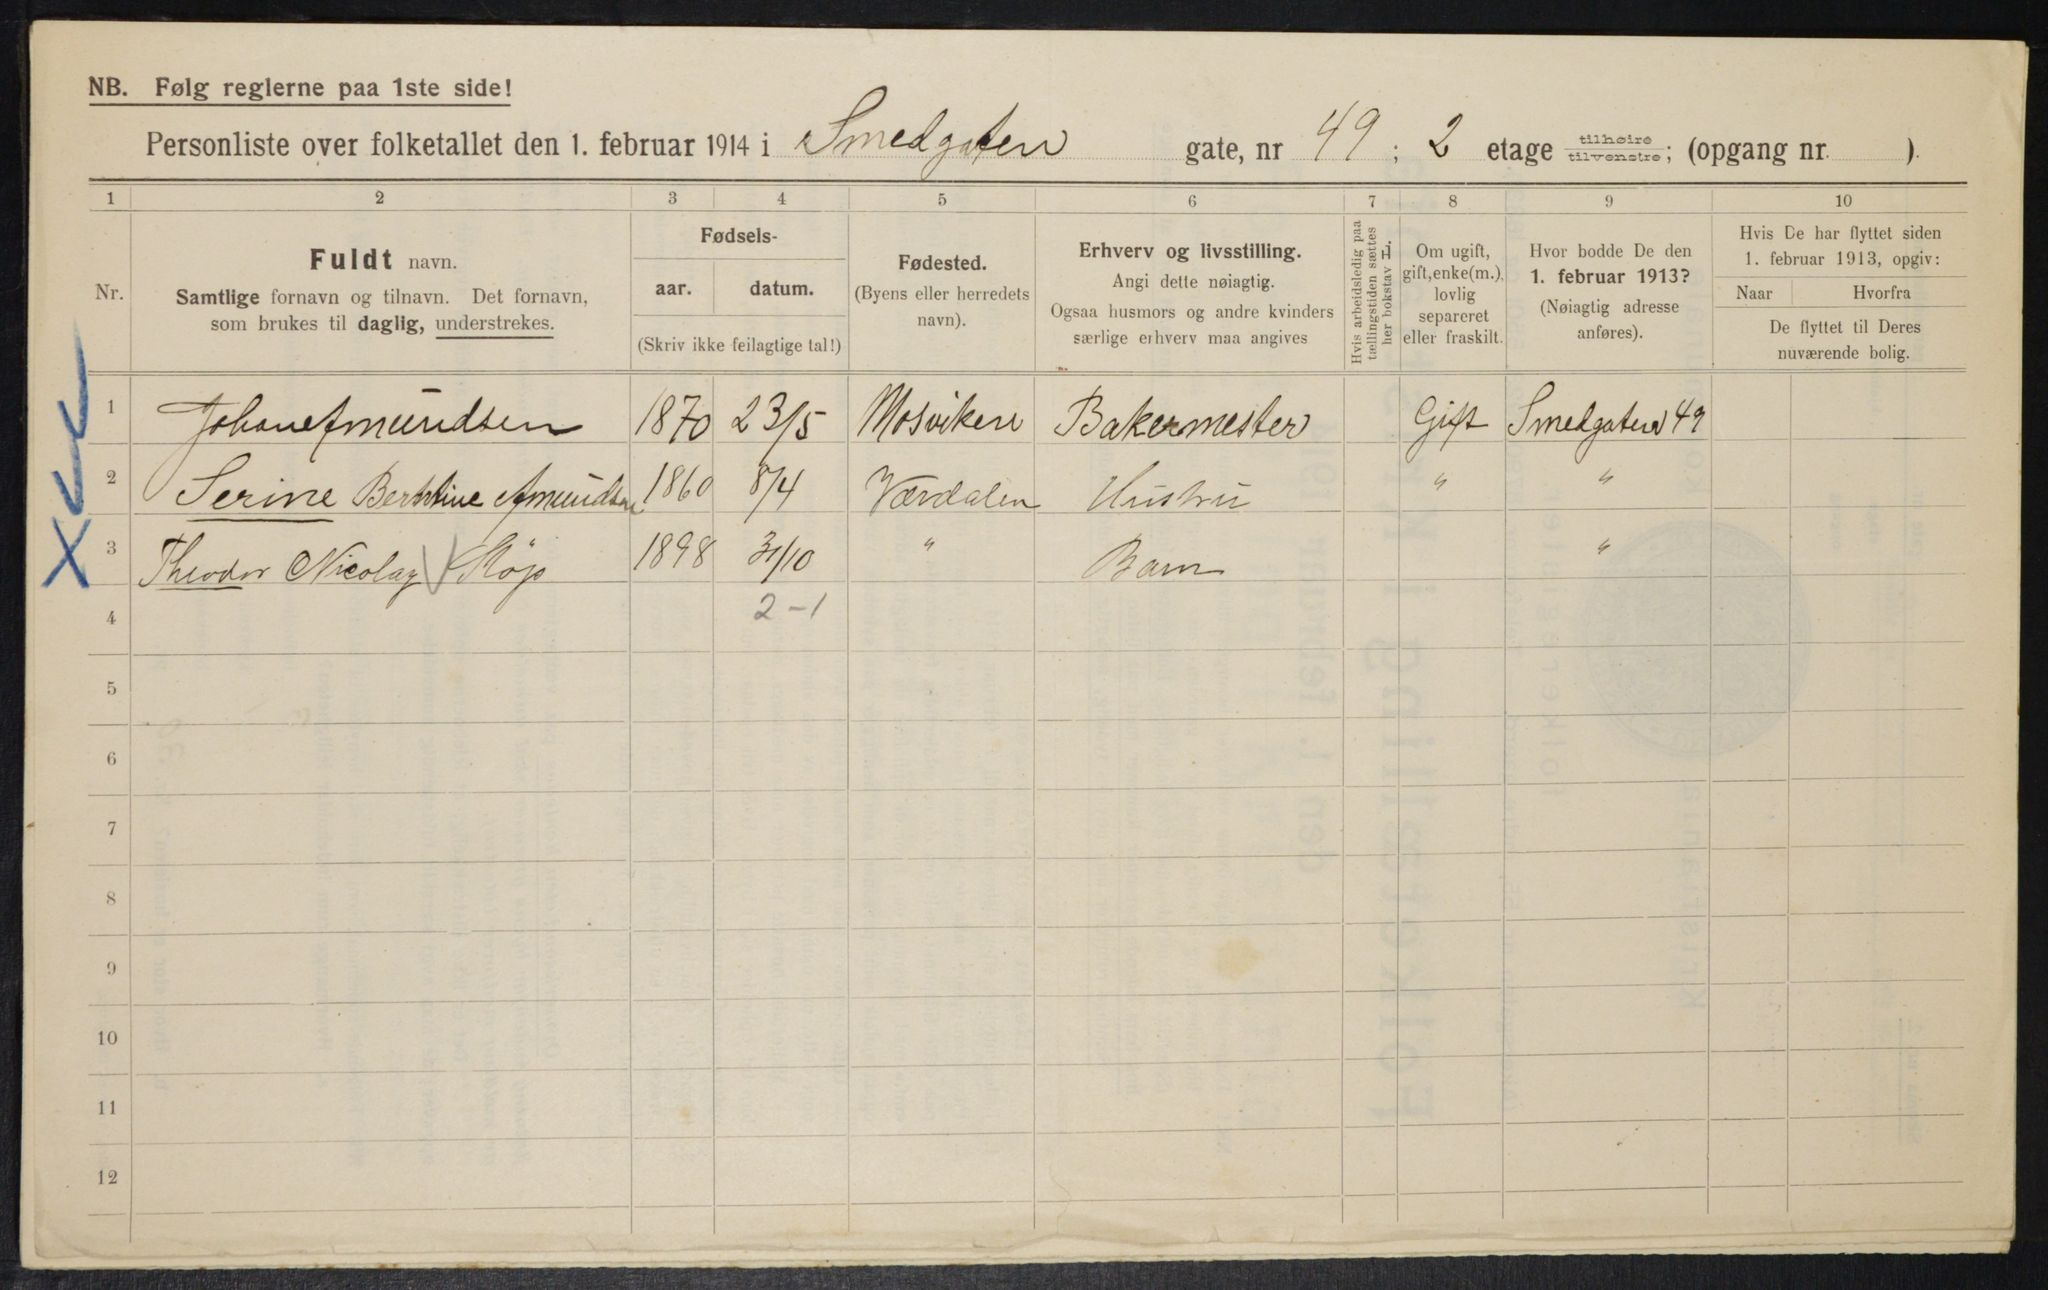 NB. Følg reglerne paa 1ste side!
Personliste over folketallet den 1. februar 1914 i Smedgaten gate, nr 49 ; 2 etage tilhøire tilvenstre; (opgang nr. ).
1 2 3 4 5 6 7 8 9 10
Nr.
Fuldt navn.
Samtlige fornavn og tilnavn. Det fornavn,
som brukes til daglig, understrekes.
Fødsels-
aar. datum.
(Skriv ikke feilagtige tal!)
Fødested.
(Byens eller herredets
navn).
Erhverv og livsstilling.
Angi dette nøiagtig.
Ogsaa husmors og andre kvinders
særlige erhverv maa angives
Hvis arbeidsledig paa
tællingstiden sættes
her bokstav L.
Om ugift,
gift, enke(m.),
lovlig
separeret
eller fraskilt.
Hvor bodde De den
1. februar 1913?
(Nøiagtig adresse
anføres).
Hvis De har flyttet siden
1. februar 1913, opgiv:
Naar Hvorfra
De flyttet til Deres
nuværende bolig.
1 Johan Amundsen 1870 23/5 Mosviken Bakermester Gift Smedgaten 49
2 Serine Berntine Amundsen 1860 8/4 Værdalen Hustru " "
3 Theodor Nicolay 1898 31/10 " Barn "
2-1
4
5
6
7
8
9
10
11
12